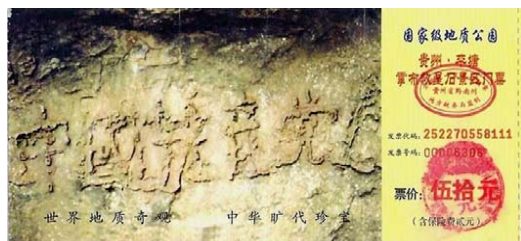 中國共産党亡
世界地质奇观 中华旷代珍宝
国家级地质公园
贵州·平塘
掌布藏字石景区门票
贵州省黔南州
发票代码:252270558111
发票号码:00006306
票价:伍拾元
(含保险费贰元)